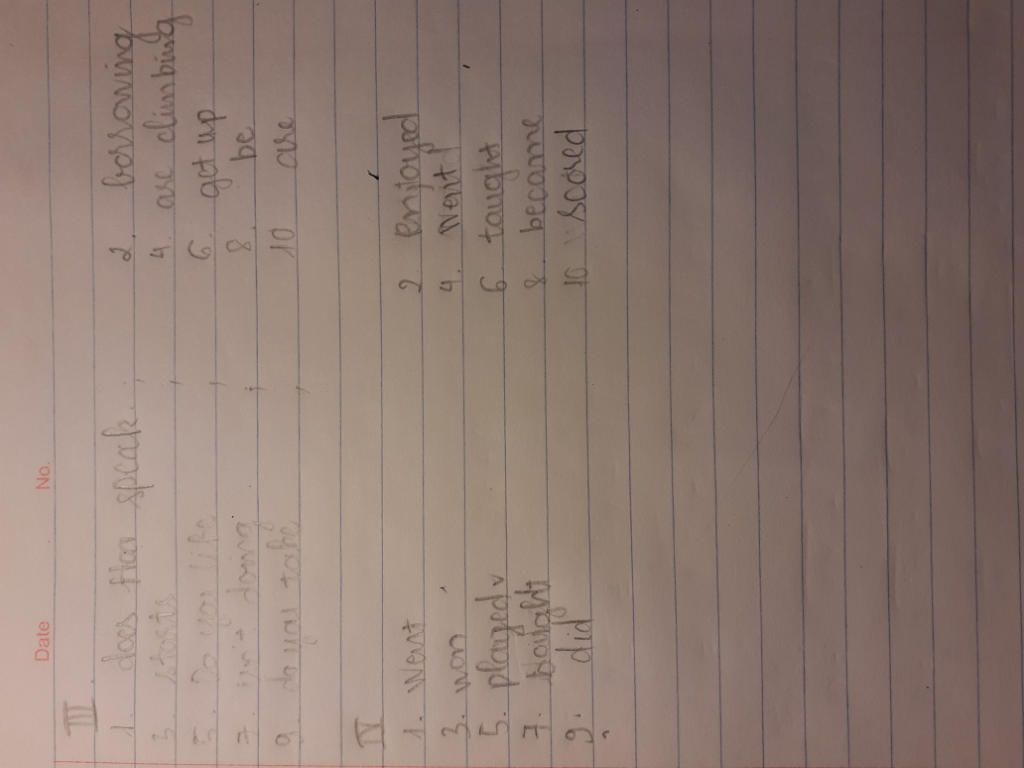 Date No.
III
1. does Hoa speak 2. borrowing
3. starts 4. are climbing
5. Do you like 6. get up
7. isn't doing 8. be
9. do you take 10 are
IV
1. went 2. Enjoyed
3. won 4. Went
5. played 6. taught
7. bought 8. became
9. did 10 scored